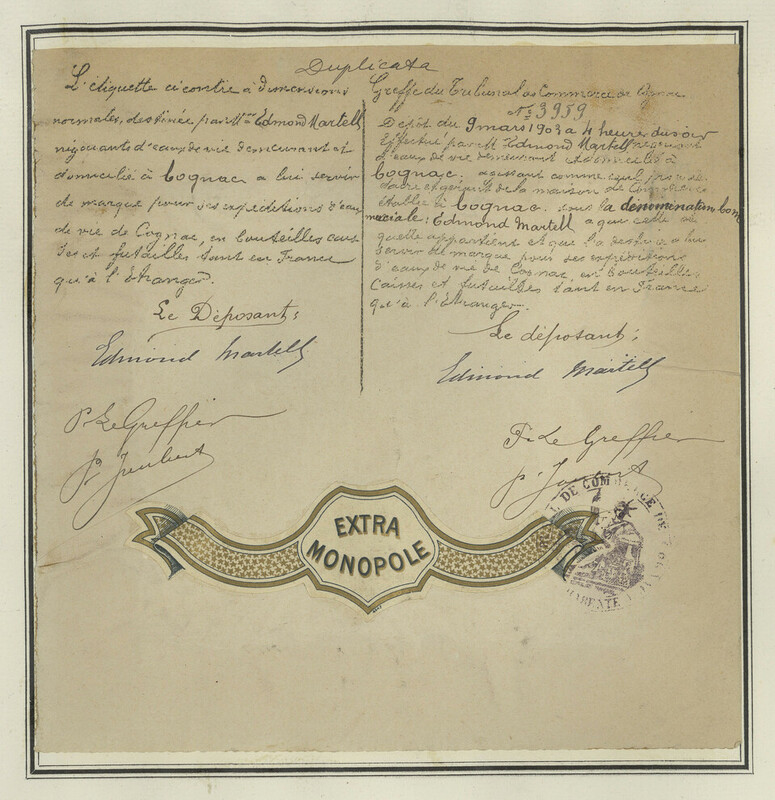 Duplicata
L'étiquette ci contre à dimensions
normales, destinée par Mr Edmond Martell
négociants d'eaux de vie demeurant et
domicilié à Cognac a lui servir
de marque pour ses expéditions d'eau
de vie de Cognac, en bouteilles cais
ses et futailles tant en France
qu'à l'Etranger.
Le Déposant:
Edmond Martell
P. Le Greffier
Greffe du Tribunal de Commerce de Cognac
No 3959
Dépôt du 9 mars 1903 à 4 heures du soir
Effectué par Mr Edmond Martell négociant
d'eaux de vie demeurant et domicilié à
Cognac: agissant comme seul proprié
taire et gérant de la maison de Commerce
établie à Cognac sous la dénomination Com
merciale: Edmond Martell a que cette éti
quette appartient et que la destine a lui
servir de marque pour ses expéditions
d'eaux de vie de Cognac en bouteilles,
Caisses et futailles tant en France
qu'à l'Etranger.
Le déposant:
Edmond Martell
P. Le Greffier
EXTRA
MONOPOLE
DE COMMERCE DE
CHARENTE